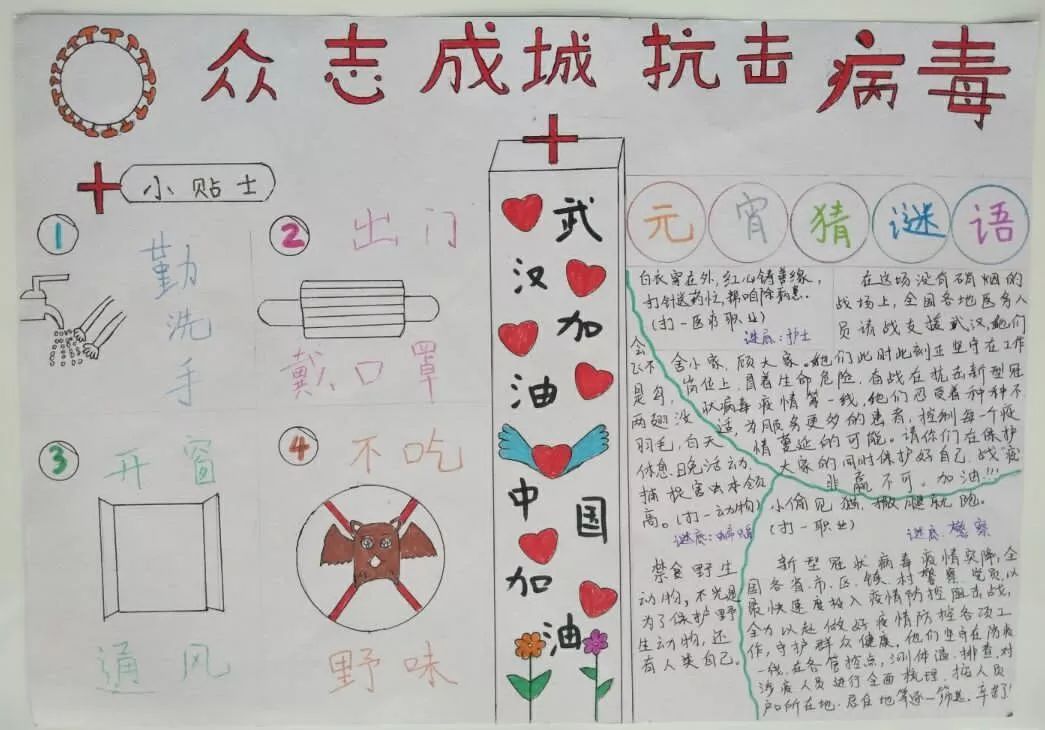 众志成城抗击病毒
小贴士
1
勤洗手
2
出门
戴口罩
3
开窗
通风
4
不吃
野味
武汉加油
中国加油
元宵猜谜语
白衣穿在外,红心铸善缘,
打针送药忙,帮咱除病患.
(打一医疗职业)
谜底:护士
在这场没有硝烟的
战场上,全国各地医务人
员请战支援武汉,她们
舍小家,顾大家。她们此时此刻正坚守在工作
岗位上,冒着生命危险,奋战在抗击新型冠
状病毒疫情第一线,他们忍受着种种不
适,为服务更多的患者,控制每一个疫
情蔓延的可能。请你们在保护
大家的同时保护好自己,战"疫"
非赢不可。加油!!!
会飞不是鸟,
两翅没
羽毛,白天
休息晚活动,
捕捉害虫本领
高。(打一动物)
谜底:蝙蝠
禁食野生
动物,不光是
为了保护野
生动物,还
有人类自己。
小偷见猫,撒腿就跑。
(打一职业)
谜底:警察
新型冠状病毒疫情突降,全
国各省、市、区、镇、村警察、党员,以
最快速度投入疫情防控阻击战,
全力以赴做好疫情防控各项工
作,守护群众健康,他们坚守在防疫
一线,在各管控点,测体温、排查,对
涉疫人员进行全面梳理,按人员
户口所在地、居住地等逐一筛选,辛苦了!